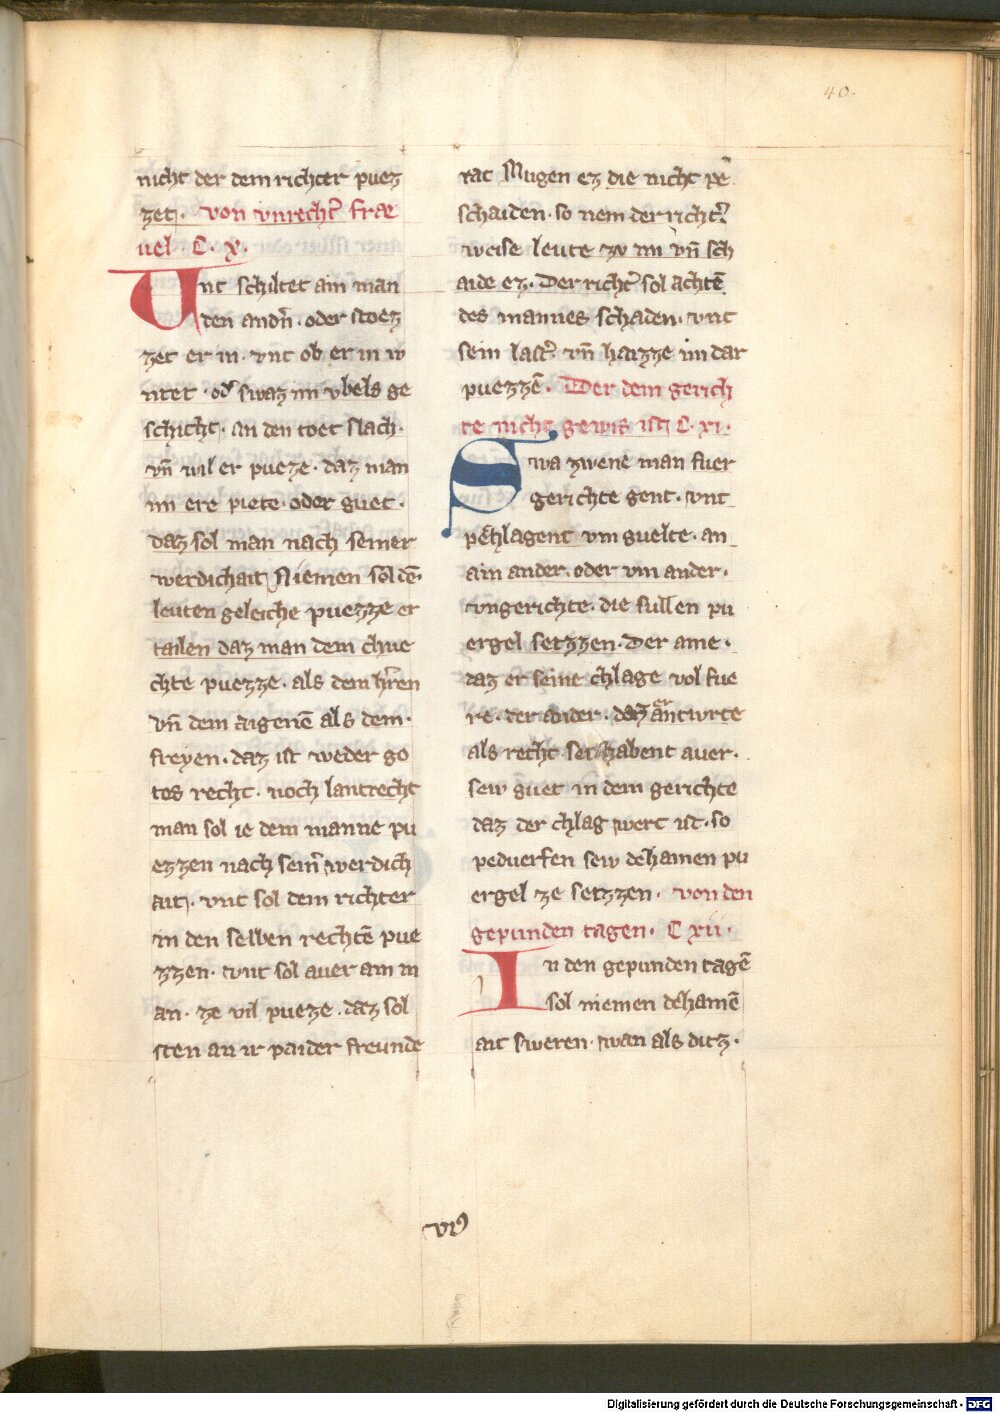 40.
nicht der dem richter puez
zet. von vnrecht᷑ fræ
uel. C. X.
Vnt schiltet ain man
den andn̄. oder stoez
zet er in. vnt ob er in w
ntet. od᷑ swaz im vbels ge
schicht. an den toet slach.
vn̄ wil er pueze. daz man
im ere piete. oder guet.
daz sol man nach seiner
werdichait Niemen sol dē.
leuten geleiche puezze er
tailen daz man dem chne
chte puezze. als dem hr̄ren
vn̄ dem aigenē als dem.
freyen. daz ist weder go
tes recht. noch lantrecht
man sol ie dem manne pu
ezzen nach sein᷑ werdich
ait. vnt sol dem richter
in den selben rechtē pue
zzen. vnt sol auer ain m
an. ze vil pueze. daz sol
sten an ir paider freunde
rat Mugen ez die nicht pē
schaiden. so nem der richt᷑.
weise leute zv im vn̄ sch
aide ez. Der richt᷑ sol achtē
des mannes schaden. vnt
sein last᷑. vn̄ haizze im dar
puezzē. Der dem gerich
te nicht gewis ist C. xi.
Swa zwene man fuer
gerichte gent. vnt
pechlagent vm guelte. an
ain ander. oder vm ander.
vngerichte. die sullen pu
ergel setzzen. Der aine.
daz er seine chlage vol fue
re. der ander. daz er antwrte
als recht sei habent auer.
sew guet in dem gerichte
daz der chlag wert ist. so
peduerfen sew dehainen pu
ergel ze setzzen. von den
gepunden tagen. C xii.
In den gepunden tagē
sol niemen dehainē
ait sweren. wan als ditz.
VI⁹
Digitalisierung gefördert durch die Deutsche Forschungsgemeinschaft - DFG